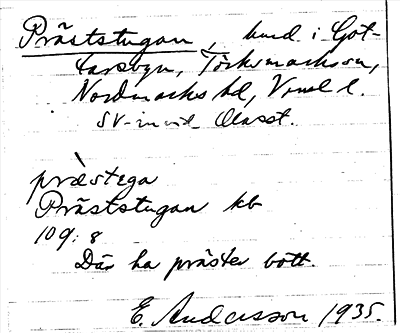 Präststugan, hmd. i Göt-
tarsbyn, Töcksmarks sn,
Nordmarks hd, Vrml l.
SV-
præstega
Präststugan kb
109:8
Där ha präster bott.
E. Andersson 1935.